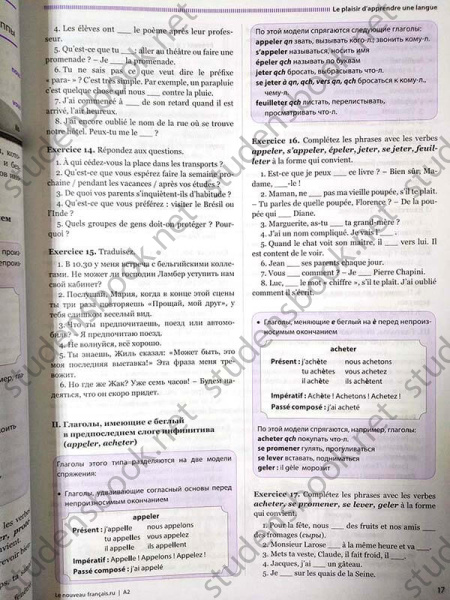 Le plaisir d'apprendre une langue
4. Les élèves ont ___ le poème après leur profes-
seur.
5. Qu'est-ce que tu ___ : aller au théâtre ou faire une
promenade ? – Je ___ la promenade.
6. Tu ne sais pas ce que veut dire le préfixe
« para- » ? C'est très simple. Par exemple, un parapluie
c'est quelque chose qui nous ___ contre la pluie.
7. J'ai commencé à ___ de son retard quand il est
arrivé, l'air heureux.
8. J'ai encore oublié le nom de la rue où se trouve
notre hôtel. Peux-tu me le ___ ?
Exercice 14. Répondez aux questions.
1. À qui cédez-vous la place dans les transports ?
2. Qu'est-ce que vous espérez faire la semaine pro-
chaine / pendant les vacances / après vos études ?
3. De quoi vos parents s'inquiètent-ils d'habitude ?
4. Qu'est-ce que vous préférez : visiter le Brésil ou
l'Inde ?
5. Quels groupes de gens doit-on protéger ? Pour-
quoi ?
Exercice 15. Traduisez.
1. В 10.30 у меня встреча с бельгийскими колле-
гами. Не может ли господин Ламбер уступить нам
свой кабинет?
2. Послушай, Мария, когда в конце этой сцены
ты три раза повторяешь «Прощай, мой друг», у
тебя слишком веселый вид.
3. Что ты предпочитаешь, поезд или автомо-
биль? – Я предпочитаю поезд.
4. Не волнуйся, всё хорошо.
5. Ты знаешь, Жиль сказал: «Может быть, это
моя последняя выставка!» Эта фраза меня тре-
вожит.
6. Но где же Жак? Уже семь часов! – Будем на-
деяться, что он скоро придет.
II. Глаголы, имеющие е беглый
в предпоследнем слоге инфинитива
(appeler, acheter)
Глаголы этого типа разделяются на две модели
спряжения:
• Глаголы, удваивающие согласный основы перед
непроизносимым окончанием
appeler
Présent : j'appelle nous appelons
tu appelles vous appelez
il appelle ils appellent
Impératif : Appelle ! Appelons ! Appelez !
Passé composé : j'ai appelé
Le nouveau français.ru | A2
По этой модели спрягаются следующие глаголы:
appeler qn звать, вызывать кого-л.; звонить кому-л.
s'appeler называться, носить имя
épeler qch называть по буквам
jeter qch бросать, выбрасывать что-л.
se jeter à qn, qch, vers qn, qch бросаться к кому-л.,
чему-л.
feuilleter qch листать, перелистывать,
просматривать что-л.
Exercice 16. Complétez les phrases avec les verbes
appeler, s'appeler, épeler, jeter, se jeter, feuil-
leter à la forme qui convient.
1. Est-ce que je peux ___ ce livre ? – Bien sûr, Ma-
dame, ___-le !
2. Maman, ne ___ pas ma vieille poupée, s'il te plaît.
– Tu parles de quelle poupée, Florence ? – De la pou-
pée qui ___ Diane.
3. Marguerite, as-tu ___ ta grand-mère ?
4. J'ai un nom compliqué. Je vais l'___ .
5. Quand le chat voit son maître, il ___ vers lui. Il
est content de le voir.
6. Jean ___ ses parents chaque jour.
7. Vous ___ comment ? – Je ___ Pierre Chapini.
8. Luc, ___ le mot « chiffre », s'il te plaît. J'ai oublié
comment il s'écrit.
• Глаголы, меняющие е беглый на è перед непроиз-
носимым окончанием
acheter
Présent : j'achète nous achetons
tu achètes vous achetez
il achète ils achètent
Impératif : Achète ! Achetons ! Achetez !
Passé composé : j'ai acheté
По этой модели спрягаются, например, глаголы:
acheter qch покупать что-л.
se promener гулять, прогуливаться
se lever вставать, подниматься
geler : il gèle морозит
Exercice 17. Complétez les phrases avec les verbes
acheter, se promener, se lever, geler à la forme
qui convient.
1. Pour la fête, nous ___ des fruits et nos amis ___
des fromages (сыры).
2. Monsieur Larose ___ à la même heure et va ___ .
3. Mets ta veste, Claude, il fait froid, il ___ .
4. Jacques, j'ai ___ un gâteau.
5. Je ___ sur les quais de la Seine.
17
studensbook.net